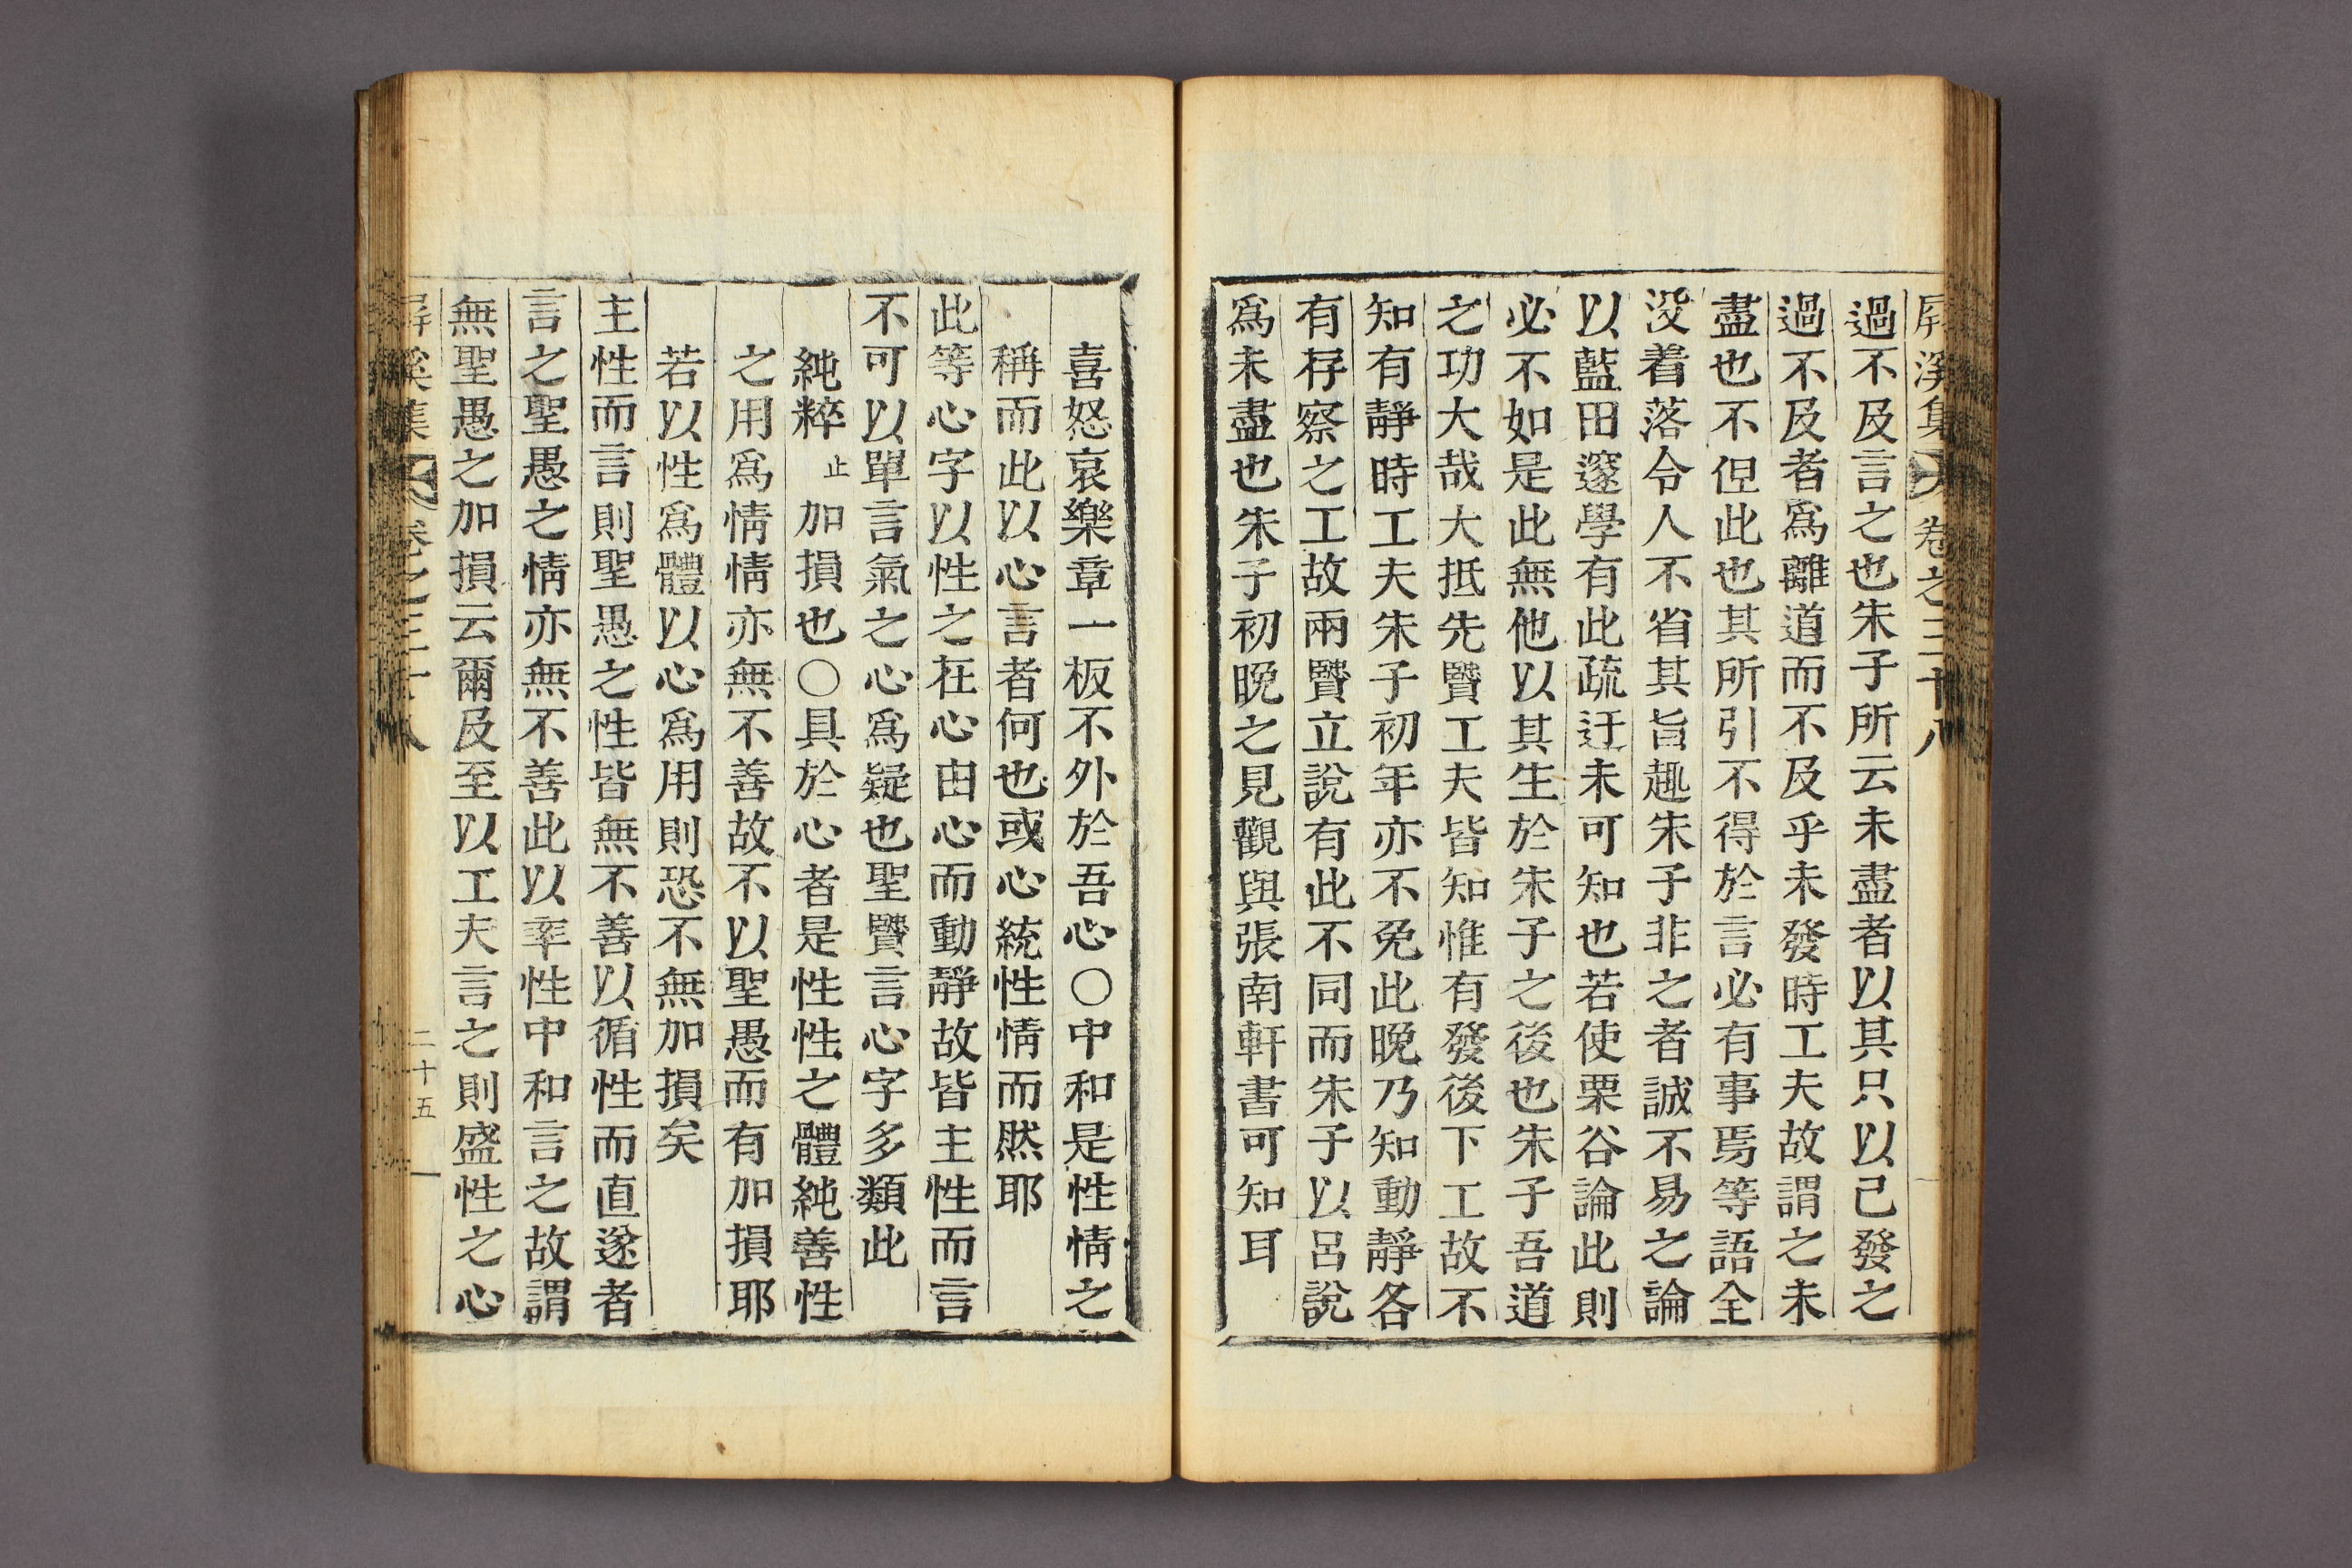 屛溪集 卷之三十八
過不及言之也朱子所云未盡者以其只以已發之
過不及者爲離道而不及乎未發時工夫故謂之未
盡也不但此也其所引不得於言必有事焉等語全
沒着落令人不省其旨趣朱子非之者誠不易之論
以藍田邃學有此疏迂未可知也若使栗谷論此則
必不如是此無他以其生於朱子之後也朱子吾道
之功大哉大抵先賢工夫皆知惟有發後下工故不
知有靜時工夫朱子初年亦不免此晩乃知動靜各
有存察之工故兩賢立說有此不同而朱子以呂說
爲未盡也朱子初晩之見觀與張南軒書可知耳
喜怒哀樂章一板不外於吾心○中和是性情之
稱而此以心言者何也或心統性情而然耶
此等心字以性之在心由心而動靜故皆主性而言
不可以單言氣之心爲疑也聖賢言心字多類此
純粹止加損也○具於心者是性性之體純善性
之用爲情情亦無不善故不以聖愚而有加損耶
若以性爲體以心爲用則恐不無加損矣
主性而言則聖愚之性皆無不善以循性而直遂者
言之聖愚之情亦無不善此以率性中和言之故謂
無聖愚之加損云爾及至以工夫言之則盛性之心
屛溪集 卷之三十八 二十五